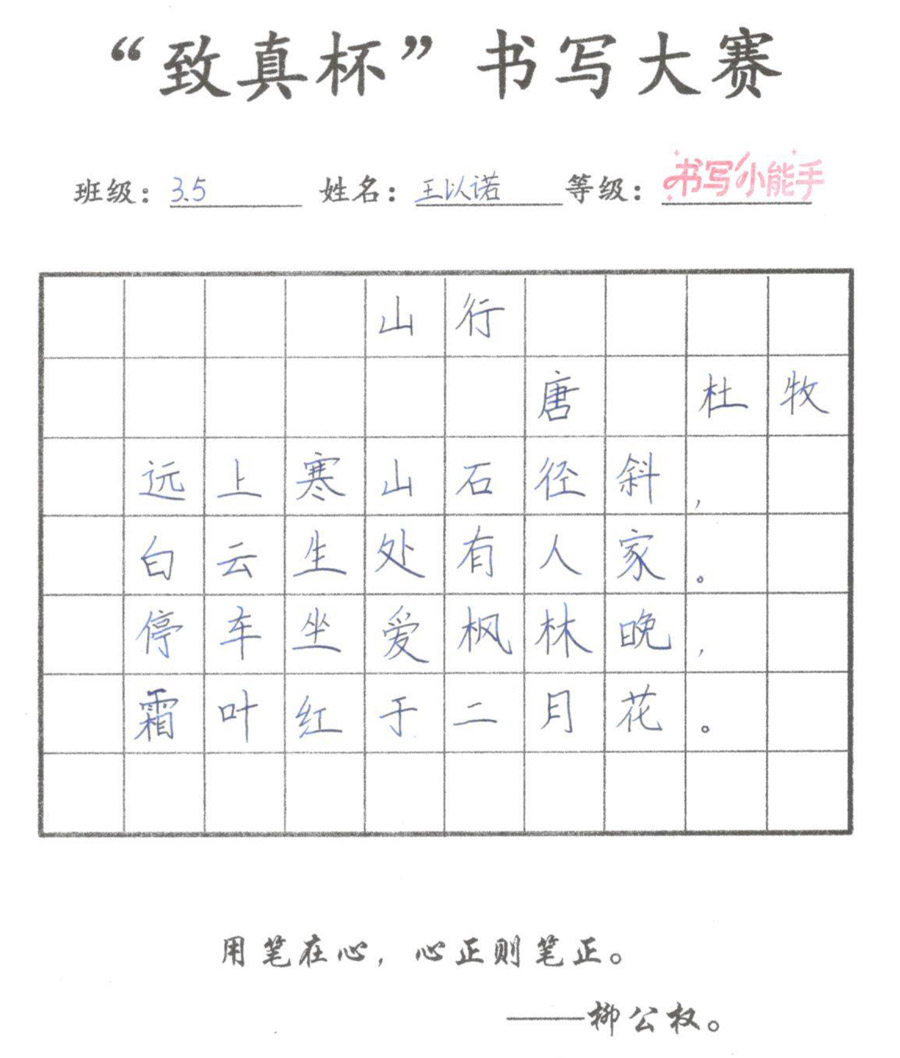 “致真杯”书写大赛
班级：3.5 姓名：王以诺 等级：书写小能手
山行
唐 杜牧
远上寒山石径斜，
白云生处有人家。
停车坐爱枫林晚，
霜叶红于二月花。
用笔在心，心正则笔正。
——柳公权。